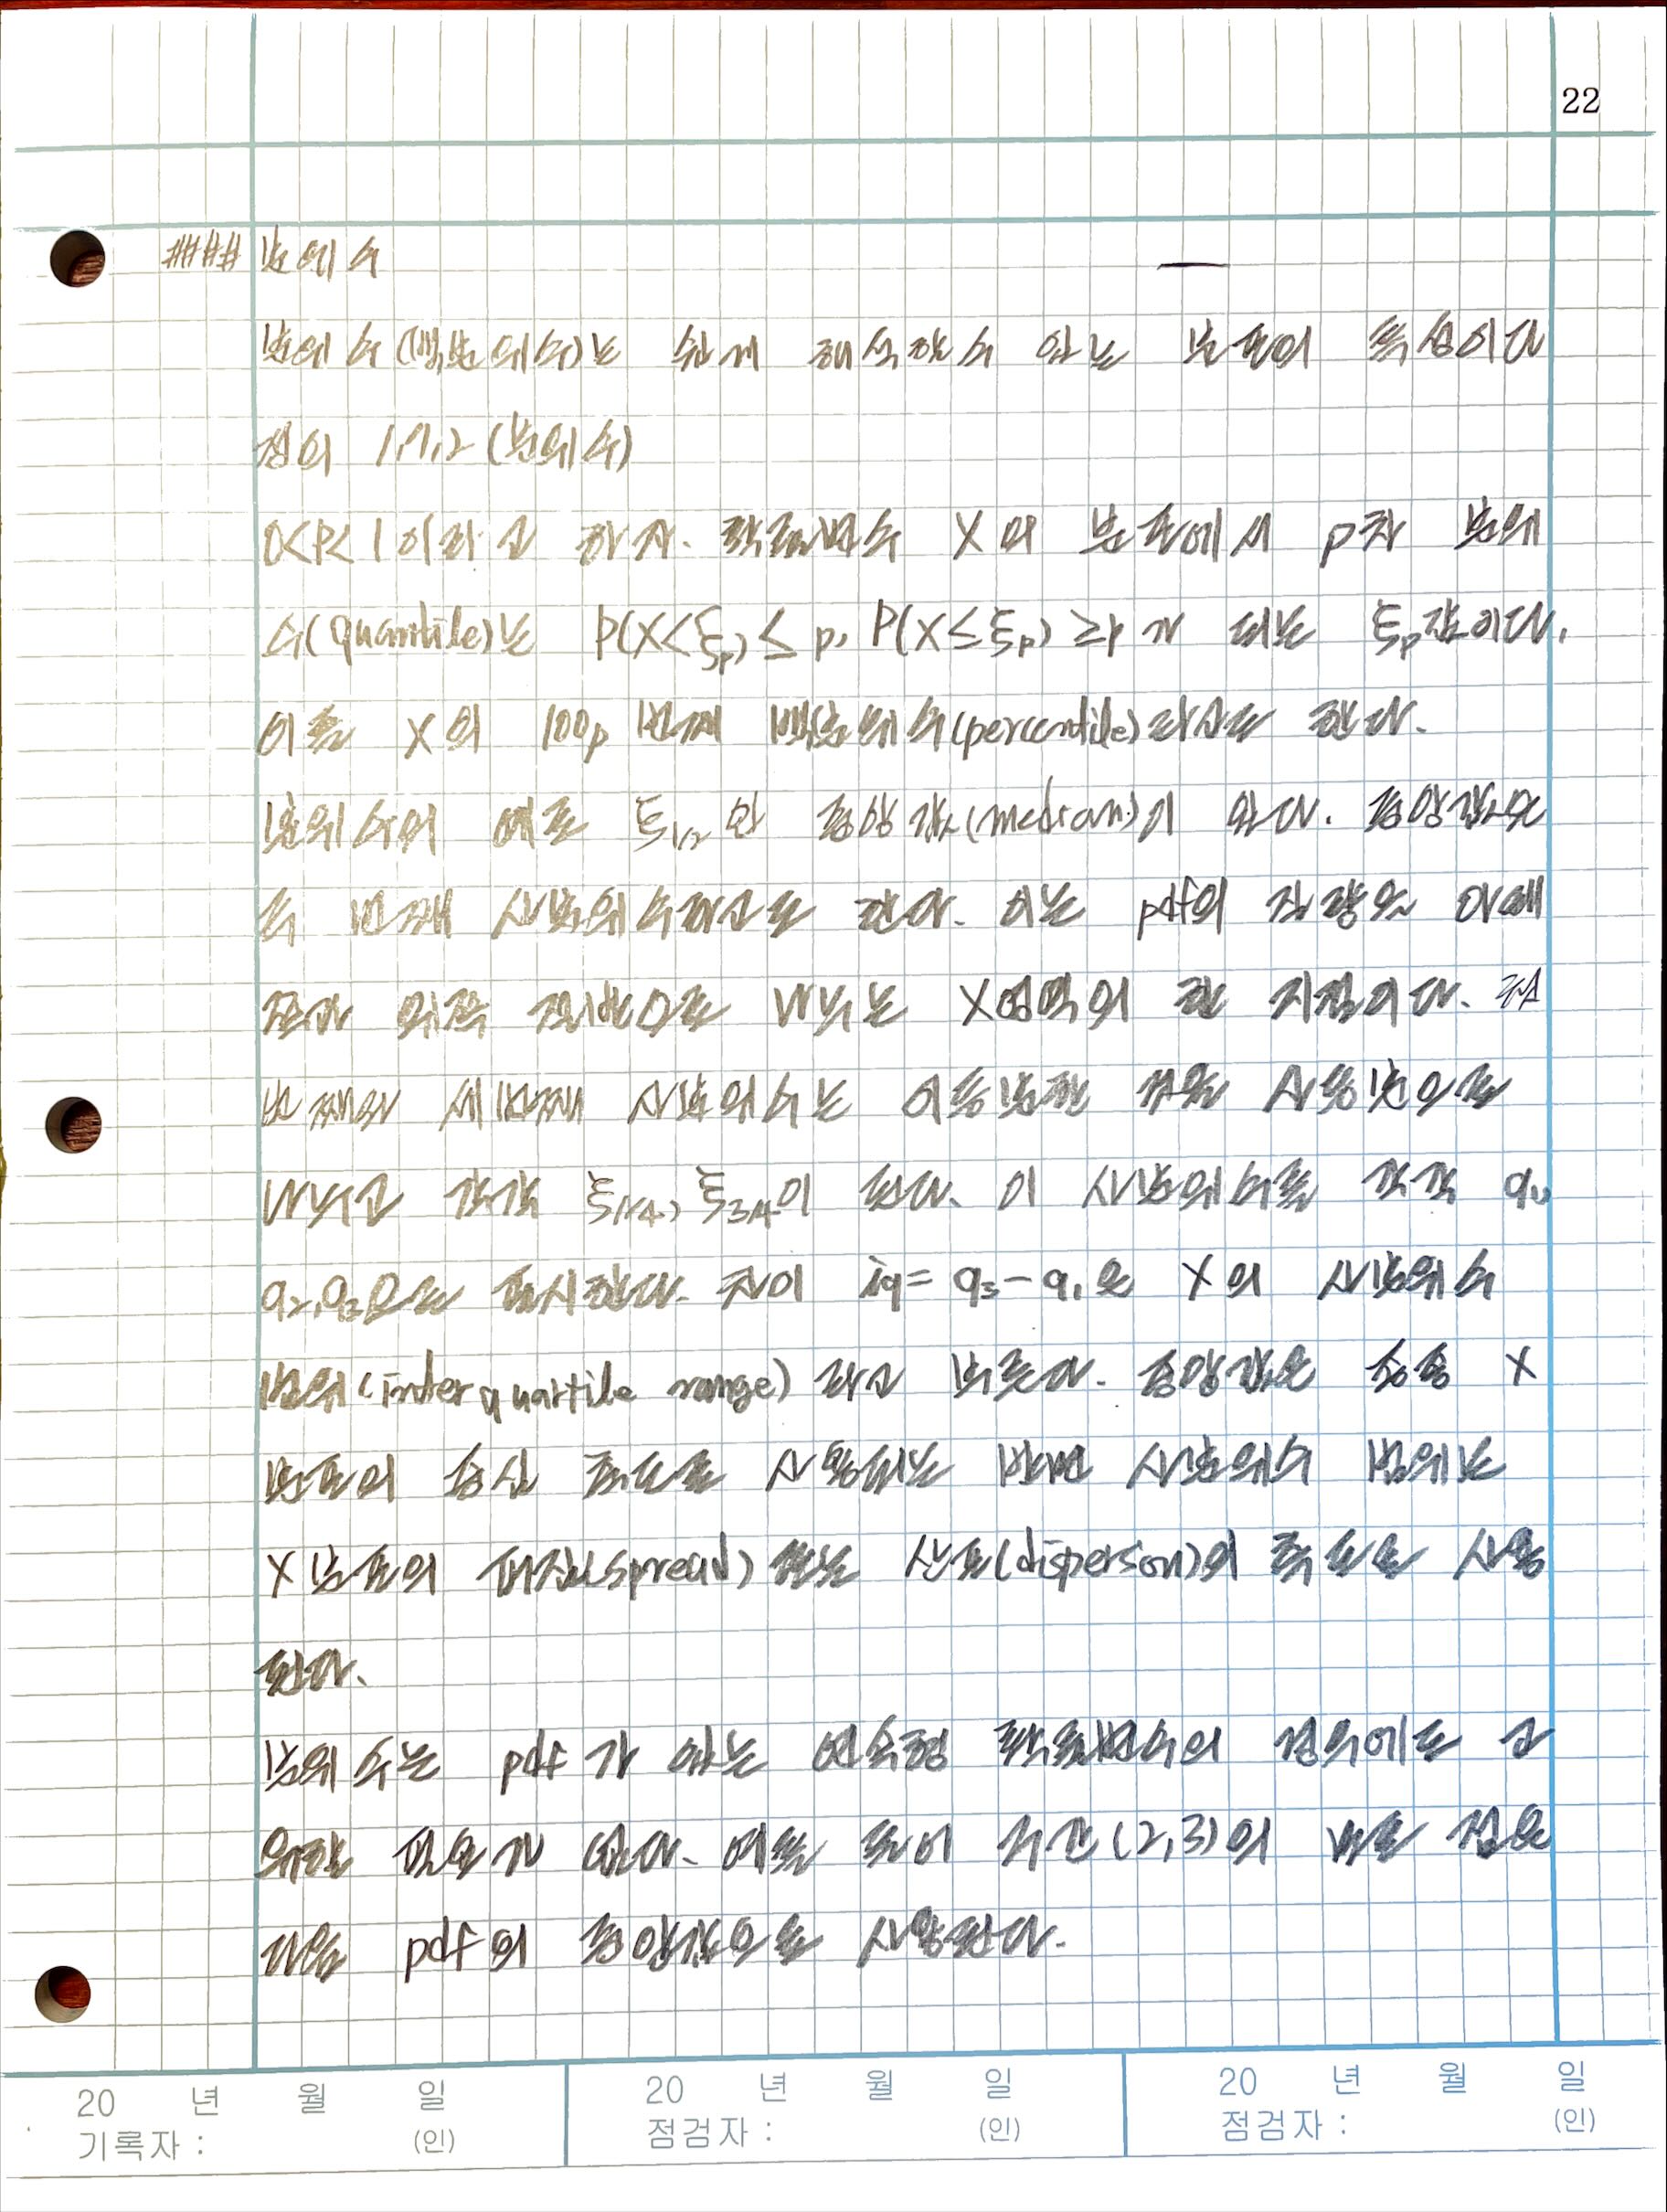 22
#### 분위수
분위수(백분위수)는 쉽게 해석할 수 있는 분포의 특성이다
정의 1.7.2 (분위수)
0<P<1이라고 하자. 확률변수 X의 분포에서 p차 분위
수(quantile)는 P(X<ξp) ≤ p, P(X≤ξp) ≥p가 되는 ξp값이다.
이를 X의 100p 번째 백분위수(percentile)라고도 한다.
분위수의 예로 ξ1/2인 중앙값(median)이 있다. 중앙값은
두 번째 사분위수라고도 한다. 이는 pdf의 질량을 아래
쪽과 위쪽 절반으로 나누는 X영역의 한 지점이다. 첫
번째와 세번째 사분위수는 이등분한 것을 사등분으로
나누고 각각 ξ1/4, ξ3/4이 된다. 이 사분위수를 각각 q1,
q2, q3으로 표시한다. 차이 iq = q3 - q1을 X의 사분위수
범위(interquartile range) 라고 부른다. 중앙값은 종종 X
분포의 중심 척도로 사용되는 반면 사분위수 범위는
X분포의 퍼짐(spread) 또는 산포(disperson)의 척도로 사용
된다.
분위수는 pdf가 있는 연속형 확률변수의 경우에도 고
유할 필요가 없다. 예를 들어 구간(2,3)의 모든 점은
다음 pdf의 중앙값으로 사용한다.
20 년 월 일
기록자 : (인)
20 년 월 일
점검자 : (인)
20 년 월 일
점검자 : (인)